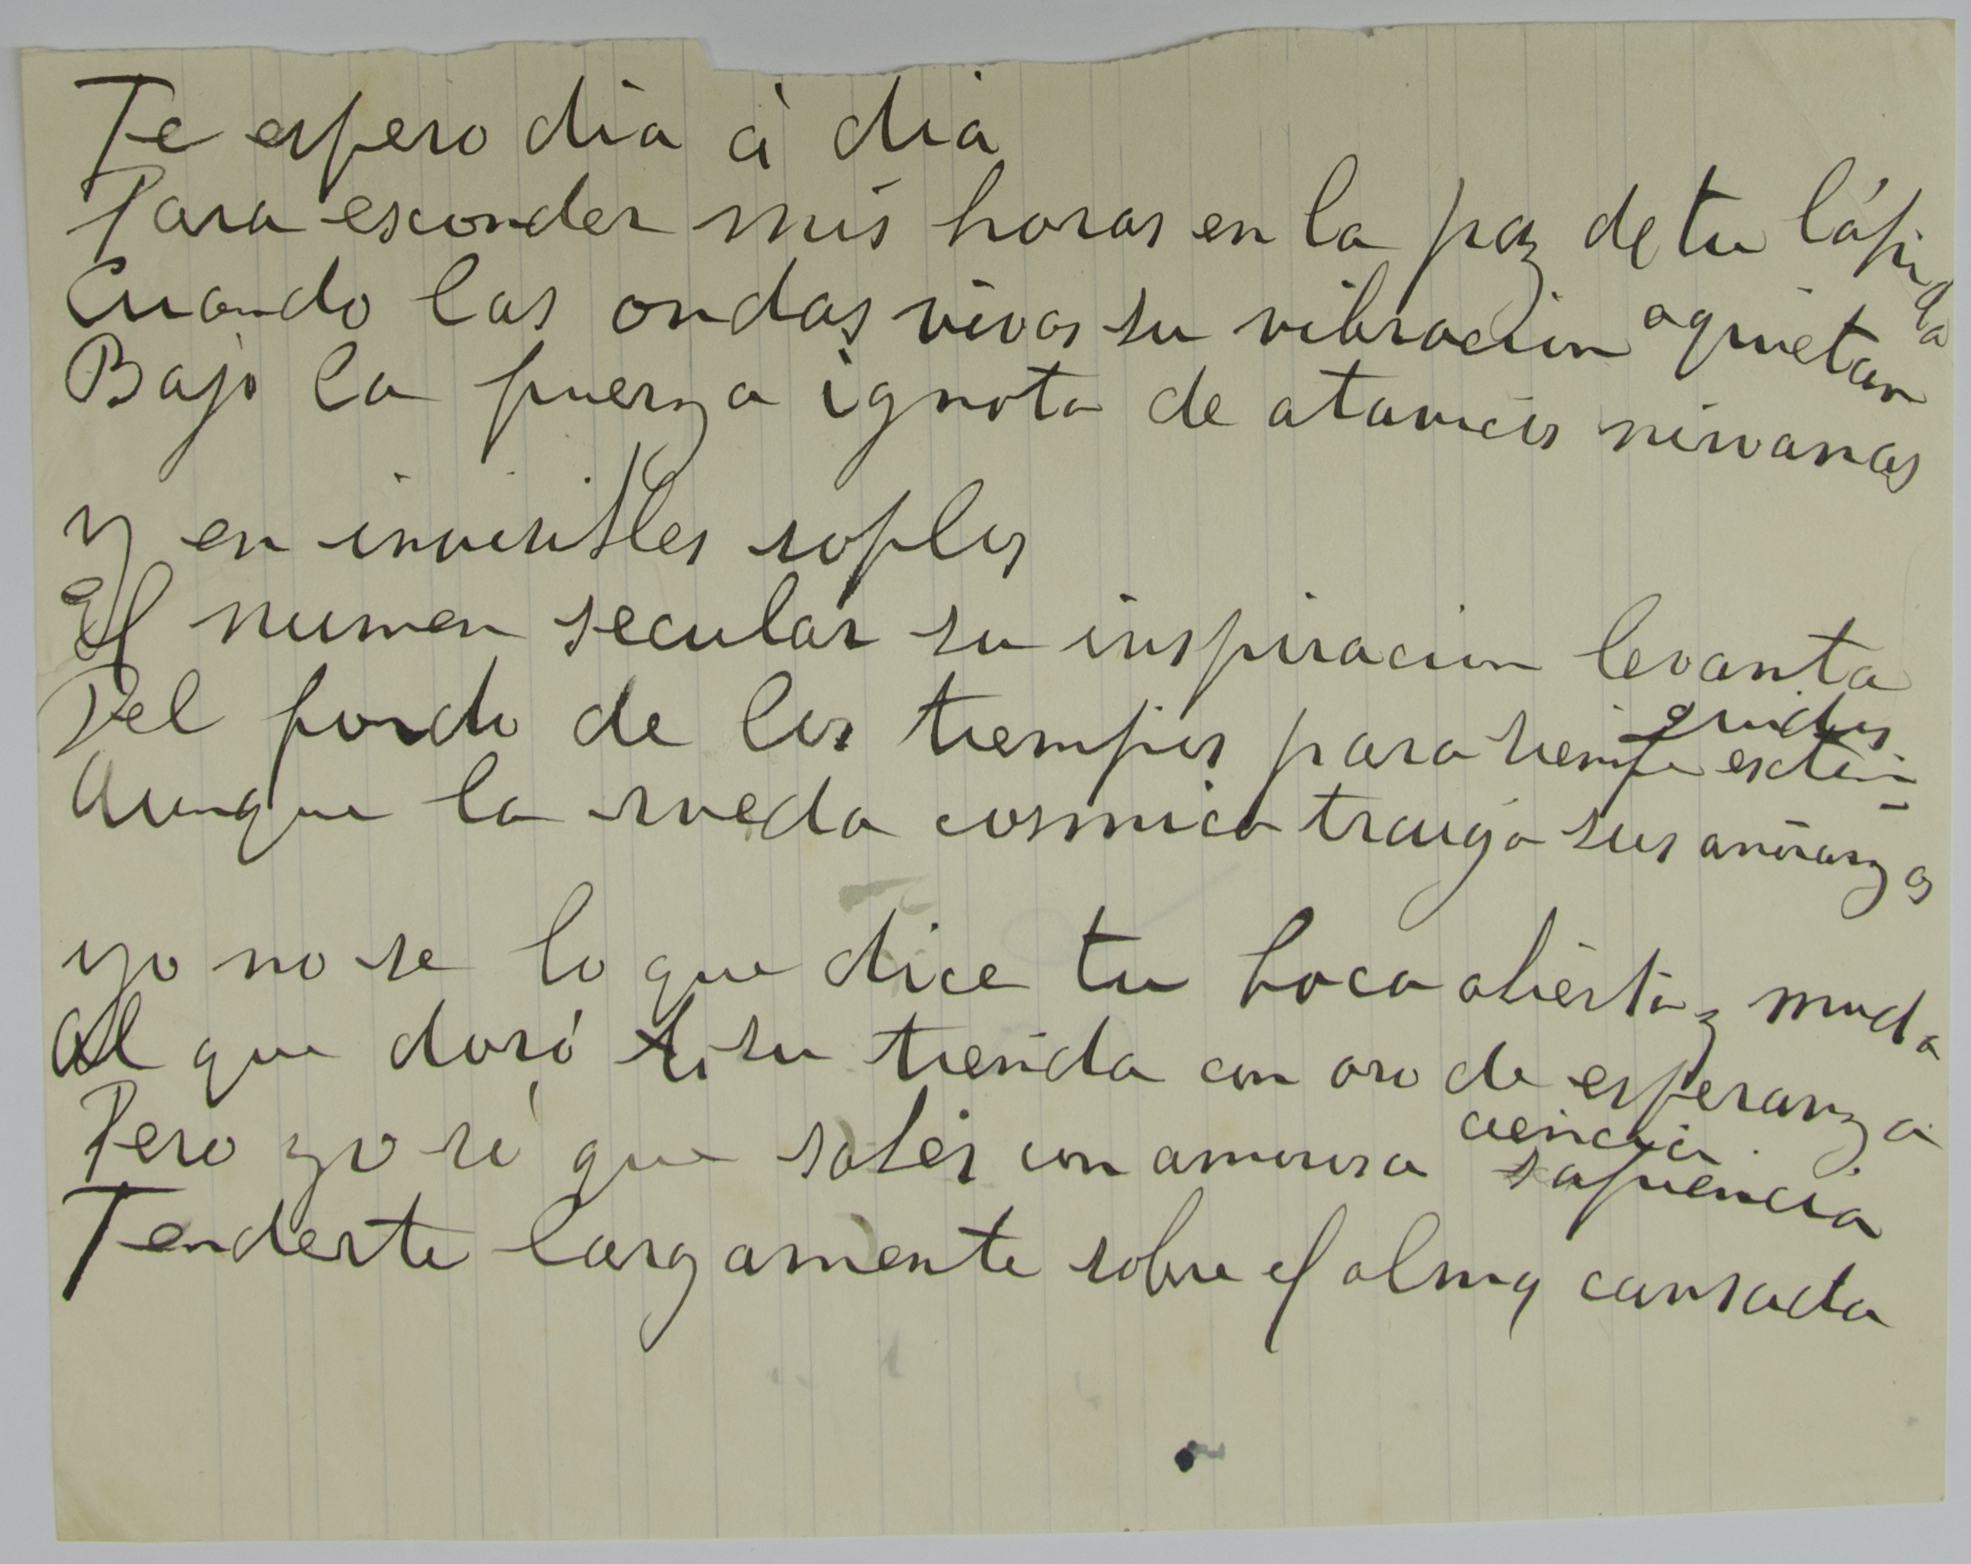 Te espero dia à dia
Para esconder mis horas en la paz de tu lápida
Cuando las ondas vivas su vibracion aquietan
Bajo la fuerza ignota de atavicos nirvanas
y en invisibles soplos
El numen secular su inspiracion levanta
Del fondo de los tiempos para siempre extinguidos
Aunque la rueda cosmica traiga sus añoranzas
yo no se lo que dice tu boca abierta y muda
Al que doró su tienda con oro de esperanza
Pero yo sé que sabes con amorosa ciencia sapiencia
Tenderte largamente sobre el alma cansada